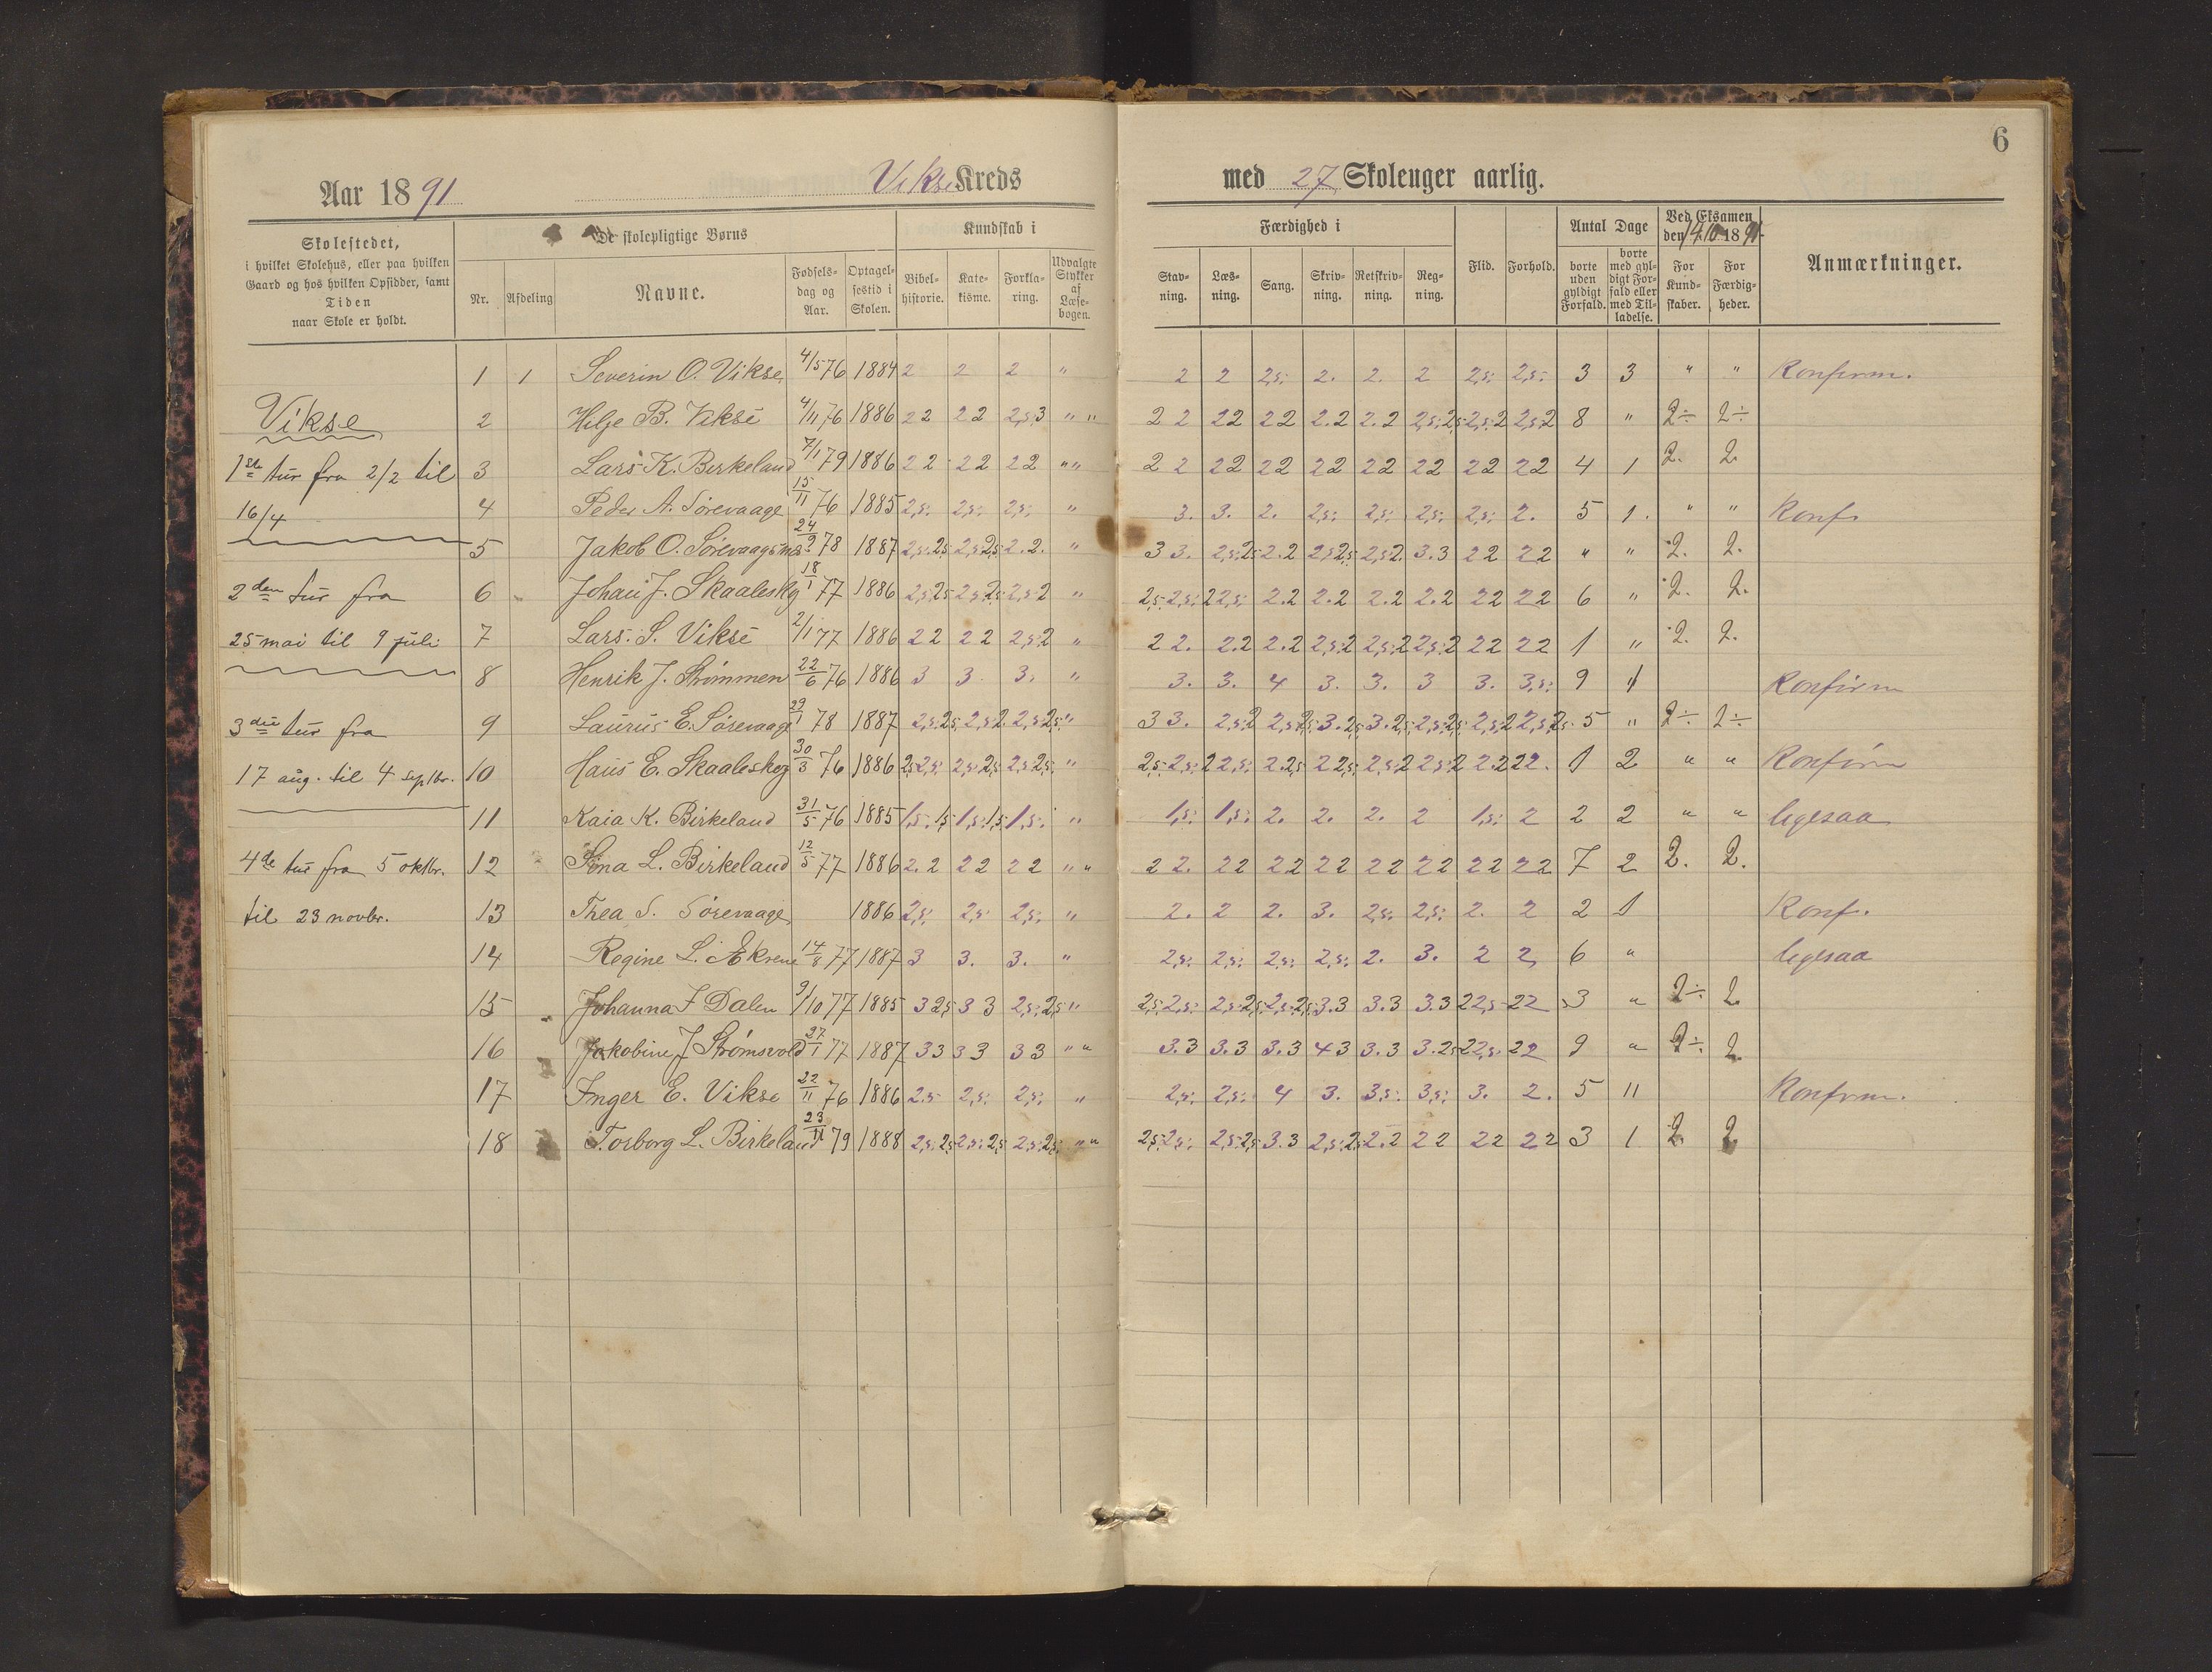 6
Aar 1891 Vikse Kreds med 27 Skoleuger aarlig.
Skolestedet, i hvilket Skolehus, eller paa hvilken Gaard og hos hvilken Opsidder, samt Tiden naar Skole er holdt.
De skolepligtige Børns
Nr. Afdeling Navne. Fødselsdag og Aar. Optagelsestid i Skolen.
Kundskab i
Bibelhistorie. Katekisme. Forklaring. Udvalgte Stykker af Læsebogen.
Færdighed i
Stavning. Læsning. Sang. Skrivning. Retskrivning. Regning. Flid. Forhold.
Antal Dage
borte uden gyldigt Forfald. borte med gyldigt Forfald eller med Tilladelse.
Ved Eksamen den 14/10 1891.
For Kundskaber. For Færdigheder.
Anmærkninger.
Vikse
1ste tur fra 2/2 til
16/4
2den tur fra
25 mai til 9 juli
3die tur fra
17 aug. til 4 septbr.
4de tur fra 5 oktbr.
til 23 novbr.
1 1 Severin O. Vikse 4/5 76 1884 2 2 2 " 2 2 2,5: 2. 2. 2 2,5: 2,5: 3 3 " " Konfirm.
2 Hilje B. Vikse 4/11 76 1886 2 2 2 2 2,5 3 " " 2 2 22 22 2.2 2.2 2,5:2,5 2,5:2 2,5:2 8 " 2÷ 2÷
3 Lars K. Birkeland 7/1 79 1886 2 2 22 22 " " 2 2 22 22 22 22 22 22 22 4 1 2. 2.
4 Peder A. Sørevaage 15/11 76 1885 2,5: 2,5: 2,5: " 3. 3. 2. 2,5: 2,5: 2,5: 2,5: 2. 5 1. " " Konf.
5 Jakob O. Sørevaagsnes 24/9 78 1887 2,5:2,5 2,5:2,5 2.2. " 3 3. 2,5:2,5 2.2 2,5:2,5 2,5:2. 3.3 22 22 " " 2. 2.
6 Johan J. Skaaleskog 18/1 77 1886 2,5:2,5 2,5:2,5 2,5:2 " 2,5:2,5: 2 2,5: 2.2 2.2 2.2 2.2 22 22 6 " 2. 2.
7 Lars S. Vikse 2/1 77 1886 2 2 2 2 2,5:2 " 2 2. 2.2 2.2 2,5:2 2,5:2 2,5:2 22 22 1 " 2. 2.
8 Henrik J. Strømmen 22/6 76 1886 3 3. 3. " 3. 3. 4 3. 3. 3 3. 3,5: 9 1 Konfirm
9 Laurus E. Sørevaage 29/1 78 1887 2,5:2,5 2,5:2 2,5:2,5 " 3 3. 2,5:2 2,5:2,5 3.2,5 3.2,5 2,5:2,5 2,5:2 2,5:2,5 5 " 2÷ 2÷
10 Hans E. Skaaleskog 30/3 76 1886 2,5 2,5: 2,5:2,5 2,5 2,5: " 2,5:2,5: 2 2,5: 2.2,5 2 2,5: 2,5:2 2,5:2 2.2 22. 1 2 " " Konfirm
11 Kaia K. Birkeland 31/5 76 1885 1,5:1,5 1,5:1,5 1,5: " 1,5: 1,5: 2. 2. 2. 2 1,5: 2 2 2 " " ligesaa
12 Sina L. Birkeland 12/5 77 1886 2.2 22 22 " " 2 2. 22 22 22 22 22 22 22 7 2 2. 2.
13 Thea S. Sørevaage 1886 2,5: 2,5: 2,5: " 2. 2 2. 3. 2,5: 2,5: 2. 2 2 1 Konf.
14 Regine L. Ekrene 14/8 77 1887 3 3. 3. " 2,5: 2,5: 2,5: 2,5: 2. 3. 2 2 6 " ligesaa
15 Johanna J Dalen 9/10 77 1885 3 2,5 3 3 2,5:2,5 " 2,5:2,5: 2,5:2,5 2,5:2,5 3.3 3.3 3.3 2 2,5 22 3 " 2÷ 2
16 Jakobine J Strømsvold 27/1 77 1887 33 33 33 " " 3.3 3.3 3.3 43 3.3 3.2,5 2 2,5: 22 9 " 2÷ 2
17 Inger E. Vikse 22/11 76 1886 2.5 2,5: 2,5: " 2,5: 2,5: 4 3. 3,5: 3,5: 3. 2. 5 11 Konfirm.
18 Torborg L. Birkeland 23/11 79 1888 2,5:2,5 2,5:2,5 2,5:2,5 " " 2,5:2,5: 2,5:2,5 3.3 2,5:2,5 2.2 22 22 22 3 1 2. 2